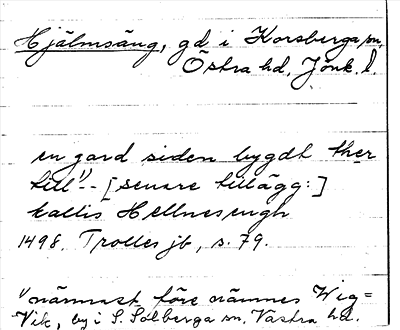 Hjälmsäng, gd i Korsberga sn,
Östra hd, Jönk. l.
en gard siden bygdt ther
till¹⁾-- [senare tillägg:]
kallis Hellnesengh
1498. Trolles jb, s. 79.
¹⁾ närmast före nämnes Wig=
Vik, by i S. Solberga sn, Västra hd.